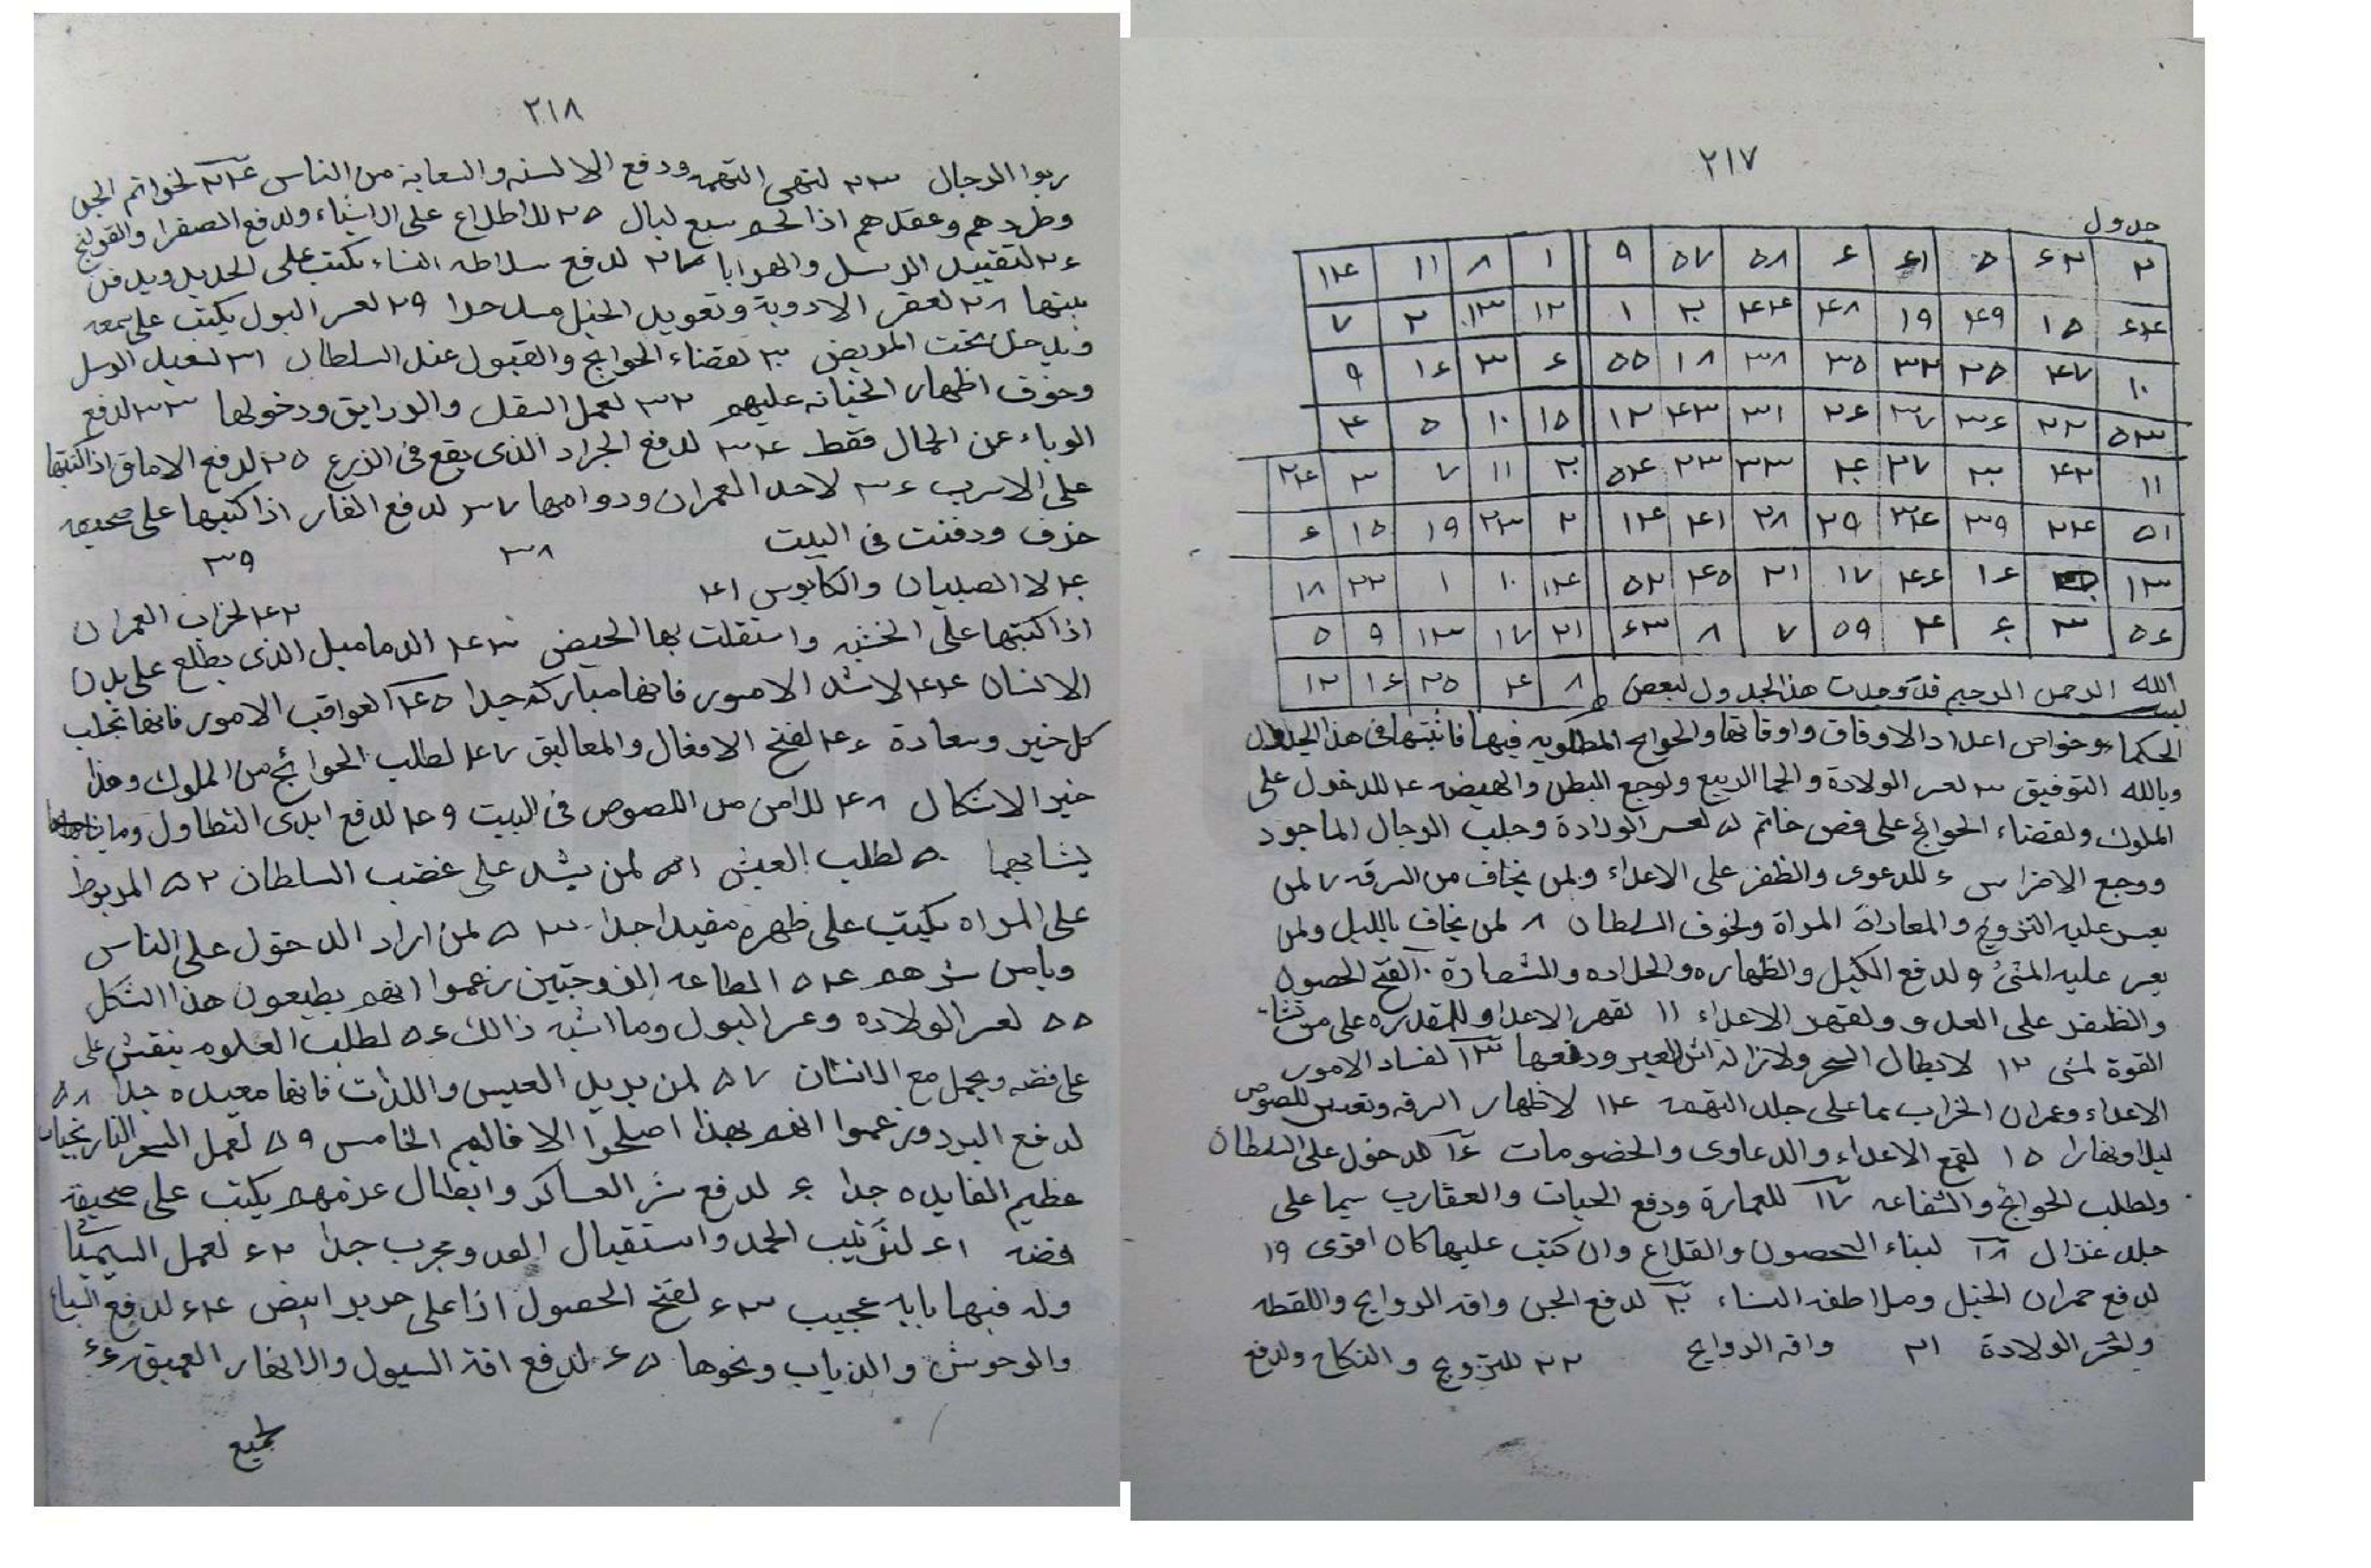 ٢١٧
جدول
٢ ٦٢ ٥ ٦١ ٦ ٥٨ ٥٧ ٩ ١ ٨ ١١ ١٤
٦٤ ١٥ ٤٩ ١٩ ٤٨ ٤٤ ٢٠ ١ ١٢ ١٣ ٢ ٧
١٠ ٤٧ ٢٥ ٣٢ ٣٥ ٣٨ ١٨ ٥٥ ٦ ٣ ١٦ ٩
٥٣ ٢٢ ٣٦ ٣٧ ٢٦ ٣١ ٤٣ ١٢ ١٥ ١٠ ٥ ٤
١١ ٤٢ ٣٠ ٢٧ ٤٠ ٣٣ ٢٣ ٥٤ ٢٠ ١١ ٧ ٣ ٢٤
٥١ ٢٤ ٣٩ ٣٤ ٢٩ ٢٨ ٤١ ١٤ ٢ ٢٣ ١٩ ١٥ ٦
١٣ ١٦ ٤٦ ١٧ ٢١ ٤٥ ٥٢ ١٤ ١٠ ١ ٢٢ ١٨
٥٦ ٣ ٦٠ ٤ ٥٩ ٧ ٨ ٦٣ ٢١ ١٧ ١٣ ٩ ٥
٨ ٤ ٢٥ ١٦ ١٢
بسم الله الرحمن الرحيم قد وجدت هذا الجدول لبعض
الحكماء وخواص اعداد الاوفاق واوقاتها والحوايج المطلوبه فيها فاثبتها فى هذا الجدول
وبالله التوفيق ٣ لعسر الولادة والحما الربيع ولوجع البطن والهيضه ٤ للدخول على
الملوك ولقضاء الحوائج على فص خاتم ٥ لعسر الولادة وجلب الرجال الماجود
ووجع الاضراس ٦ للدعوى والظفر على الاعداء ولمن يخاف من السرقه ٧ لمن
يعسر عليه التزويج والمعاداة المراة ولخوف السلطان ٨ لمن يخاف بالليل ولمن
يعسر عليه المشئ ٩ ولدفع الكيل والظهاره والحلاده والشصارة ١٠ لفتح الحصون
والظفر على العدو ولقهر الاعداء ١١ لقهر الاعداء وللمقدره على من شات
القوة لمشى ١٢ لابطال السحر ولازالة اثر العين ودفعها ١٣ لفساد الامور
الاعداء وعمران الخراب بما على جلد التهمه ١٤ لاظهار السرقه وتعدين للصوص
ليلا ونهارا ١٥ لقمع الاعداء والدعاوى والخضومات ١٦ للدخول على السلطان
ولطلب الحوائج والشفاعه ١٧ للعمارة ودفع الحيات والعقارب سيما على
جلد غزال ١٨ لبناء الحصون والقلاع وان كتب عليها كان اقوى ١٩
لدفع حمران الخيل وملاطفه النساء ٢٠ لدفع الجن وافه الروايح واللقطه
ولعسر الولادة ٢١ وافه الروايح ٢٢ للتزويج والنكاح ولدفع
٢١٨
ربوا الرجال ٢٣ لنهى التهمه ودفع الالسنه والسعاية من الناس ٢٤ لخواتم الجن
وطردهم وعقدهم اذا سبع ليال ٢٥ للاطلاع على الاشياء ولدفع الصفرا والقولنج
٢٦ لتقييد الرسل والهدايا ٢٧ لدفع سلاطه النساء يكتب على الحديد ويدفن
ببيتها ٢٨ لعقر الادوية وتعويد الخيل جدا ٢٩ لعسر البول يكتب على شمعه
ويدخل تحت المريض ٣٠ لقضاء الحوايج والقبول عند السلطان ٣١ الرسل
وخوف اظهار الخيانه عليهم ٣٢ لعمل النقل والورايق ودخولها ٣٣ لدفع
الوباء عن الجمال فقط ٣٤ لدفع الجراد الذى يقع فى الزرع ٣٥ لدفع الاماق اذا كتبتها
على الاسرب ٣٦ لاحد العمران ودوامها ٣٧ لدفع الفار اذا كتبها على صحيفه
خزف ودفنت فى البيت ٣٨ ٣٩
٤٠ لا الصبيان والكابوس ٤١ ٤٢ لخراب العمران
اذا كتبتها على الخشبه واستقلت بها الحيض ٤٣ الدماميل الذى يطلع على بدن
الانسان ٤٤ لاشد الامور فانها مباركه جدا ٤٥ لعواقب الامور فانها تجلب
كل خير وسعادة ٤٦ لفتح الاقفال والمعاليق ٤٧ لطلب الحوائج من الملوك وهذا
خير الاشكال ٤٨ للامن من اللصوص فى البيت ٤٩ لدفع ايدى التطاول وما
يشابهها ٥٠ لطلب العيش ٥١ لمن يشد على غضب السلطان ٥٢ المربوط
على المراه يكتب على ظهره مفيدا جدا ٥٣ لمن اراد الدخول على الناس
ويامن شرهم ٥٤ المطاعه الزوجتين زعموا انهم يطيعون هذا الشكل
٥٥ لعسر الولاده وعسر البول وما اشبه ذالك ٥٦ لطلب العلوم ينقش على
على فضه ويحمل مع الانسان ٥٧ لمن يريد العيس واللذات فانها مفيده جدا ٥٨
لدفع البرد وزعموا انهم بهذا اصلحوا الاقاليم الخامس ٥٩ لعمل السحر النارنجيات
عظيم الفايده جدا ٦٠ لدفع شر العساكر وابطال عزمهم يكتب على صحيفة
فضه ٦١ لترتيب الحمد واستقبال العدو مجرب جدا ٦٢ لعمل السيميا
وله فيها بابه عجيب ٦٣ لفتح الحصول اذا على حرير ابيض ٦٤ لدفع السباع
والوحوش والذياب ونحوها ٦٥ لدفع افة السيول والانهار العميقه ٦٦
لجميع